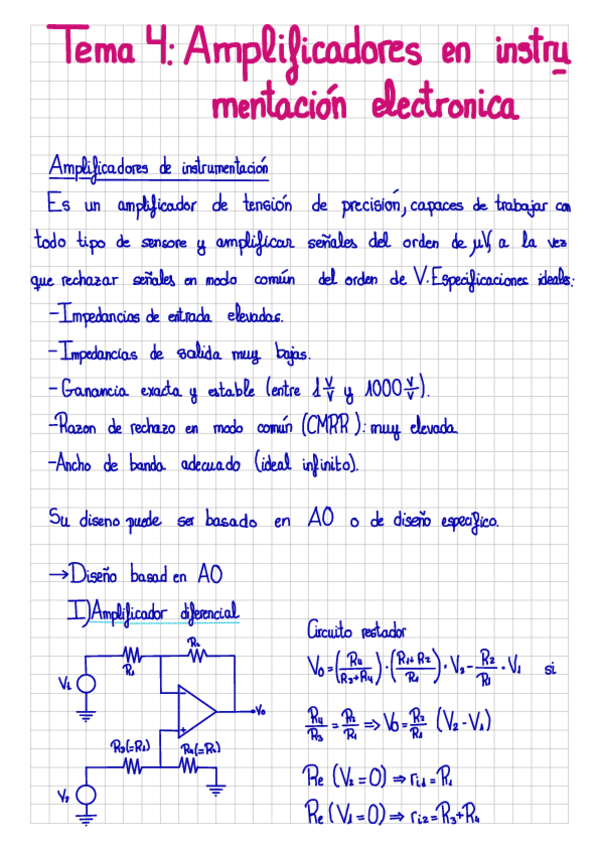 Tema 4: Amplificadores en instru
mentación electronica
Amplificadores de instrumentación
Es un amplificador de tensión de precisión, capaces de trabajar con
todo tipo de sensore y amplificar señales del orden de μV, a la vez
que rechazar señales en modo común del orden de V. Especificaciones ideales:
-Impedancias de entrada elevadas.
-Impedancias de salida muy bajas.
-Ganancia exacta y estable (entre 1 V/V y 1000 V/V).
-Razon de rechazo en modo común (CMRR): muy elevada
-Ancho de banda adecuado (ideal infinito).
Su diseno puede ser basado en AO o de diseño específico.
→Diseño basad en AO
I) Amplificador diferencial
R2
R1
V1
Vo
R3(=R1) R4(=R2)
V2
Circuito restador
Vo=(R4/(R3+R4))·((R1+R2)/R1)·V2-R2/R1·V1 si
R4/R3=R2/R1⇒Vo=R2/R1 (V2-V1)
Re (V2=0)⇒ri1=R1
Re (V1=0)⇒ri2=R3+R4